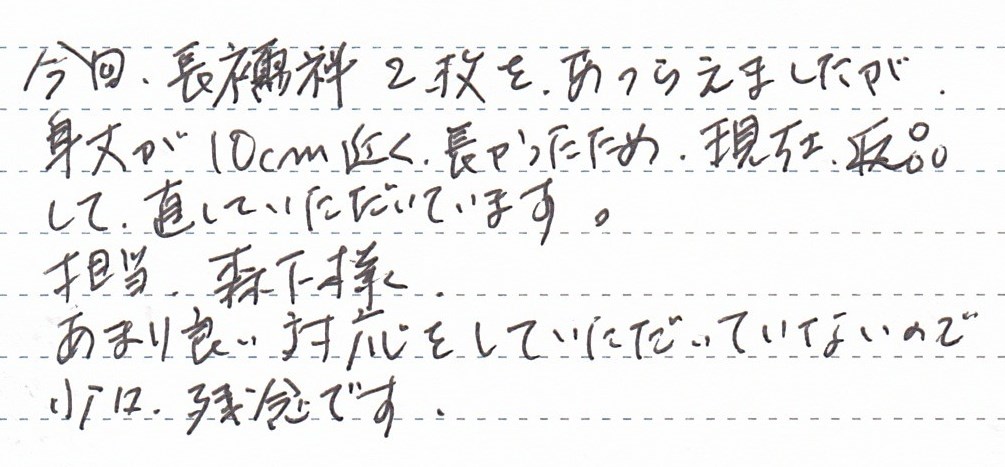 今回、長襦袢2枚を、あつらえましたが、
身丈が10cm近く、長かったため、現在、返品
して、直していただいています。
担当、森下様、
あまり良い対応をしていただいていないので
少々、残念です。